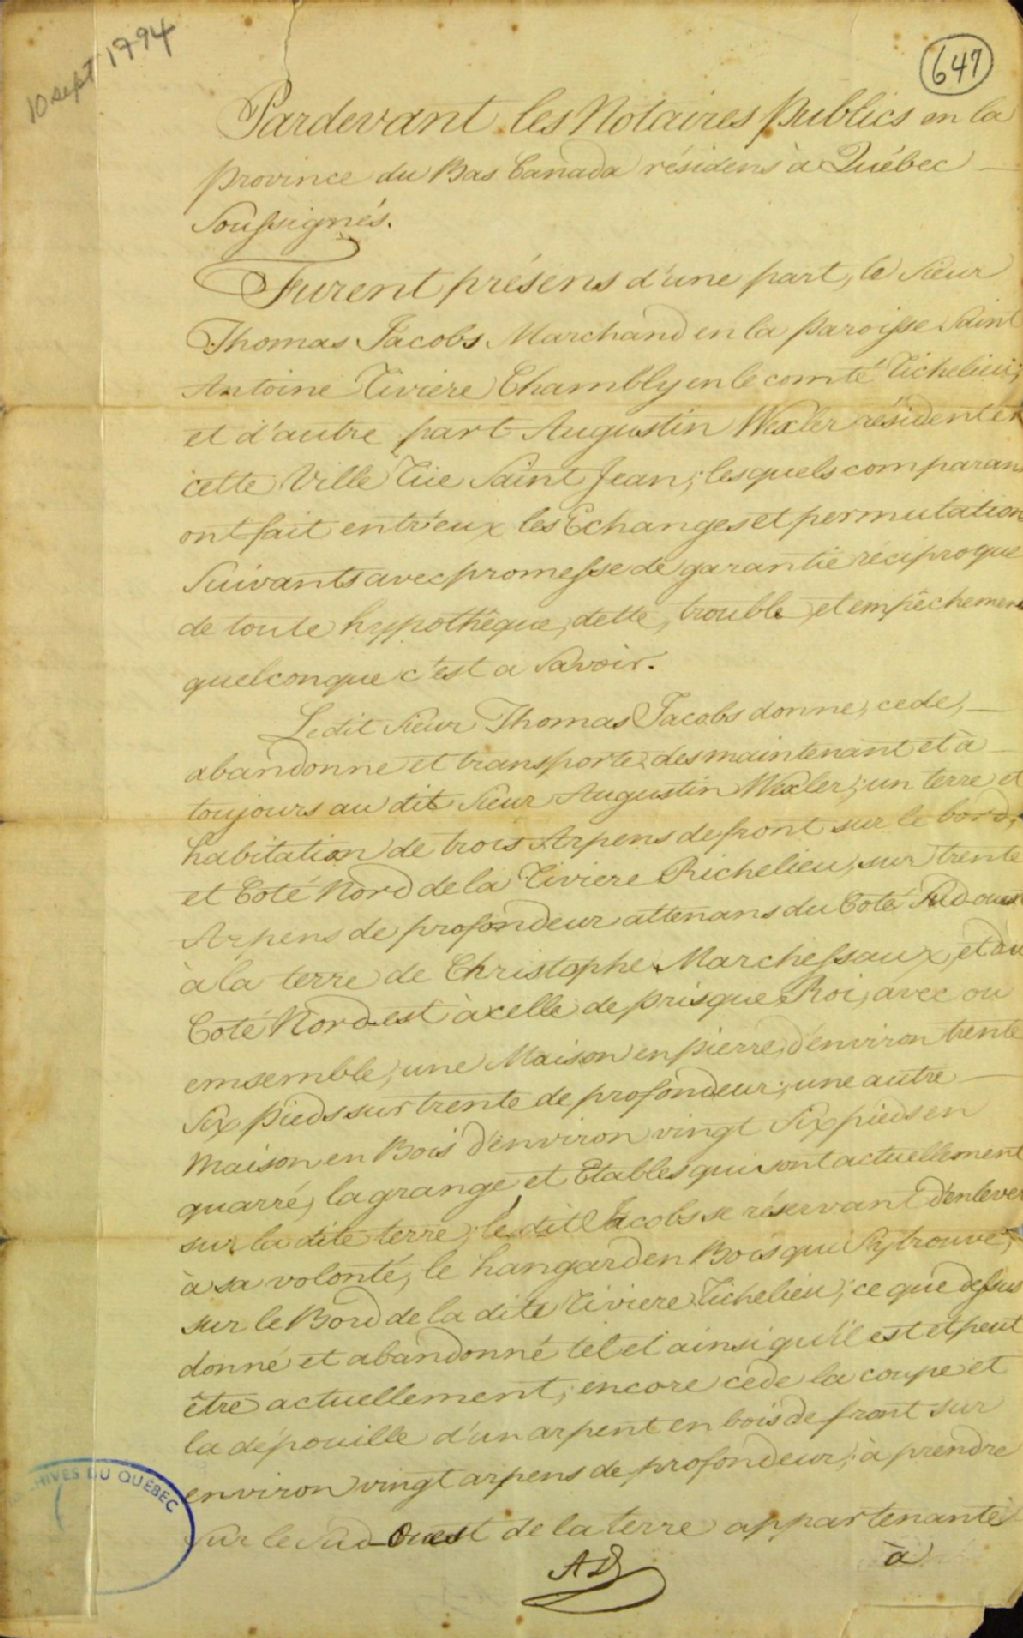 10 sept 1794
647
Pardevant les Notaires Publics en la
province du Bas Canada résidens à Québec
Soussignés.
Furent présens d'une part, le Sieur
Thomas Jacobs Marchand en la paroisse Saint
Antoine Riviere Chambly en le comté Richelieu;
et d'autre part Augustin Wexler résident en
cette Ville Rüe Saint Jean; lesquels comparans
ont fait entr'eux les Echanges et permutation
Suivants avec promesse de garantie réciproque
de toute hypothêque, dette, trouble, et empêchement
quelconque c'est a Savoir.
Ledit Sieur Thomas Jacobs donne, cede,
abandonne et transporte des maintenant et à
toujours au dit Sieur Augustin Wexler; un terre et
habitation de trois Arpens de front sur le bord,
et Coté Nord de la Riviere Richelieu, sur trente
Arpens de profondeur attenans du Coté Sud-ouest
à la terre de Christophe Marchessaux, et du
Coté Nord-est à celle de prisque Roi, avec ou
emsemble, une Maison en pierre, d'environ trente
Six pieds sur trente de profondeur; une autre
Maison en Bois d'environ vingt Six pieds en
quarré, la grange et Etables qui sont actuellement
sur la dite terre; le dit Jacobs se réservant d'enlever
à sa volonté, le hangard en Bois qui s'y trouve,
sur le Bord de la dite Riviere Richelieu; ce que dessus
donné et abandonné tel et ainsi qu'il est et peut
être actuellement; encore cede la coupe et
la dépouille d'un arpent en bois de front sur
environ vingt arpens de profondeur, à prendre
Sur le Sud-Ouest de la terre appartenante
à
AD
ARCHIVES DU QUÉBEC